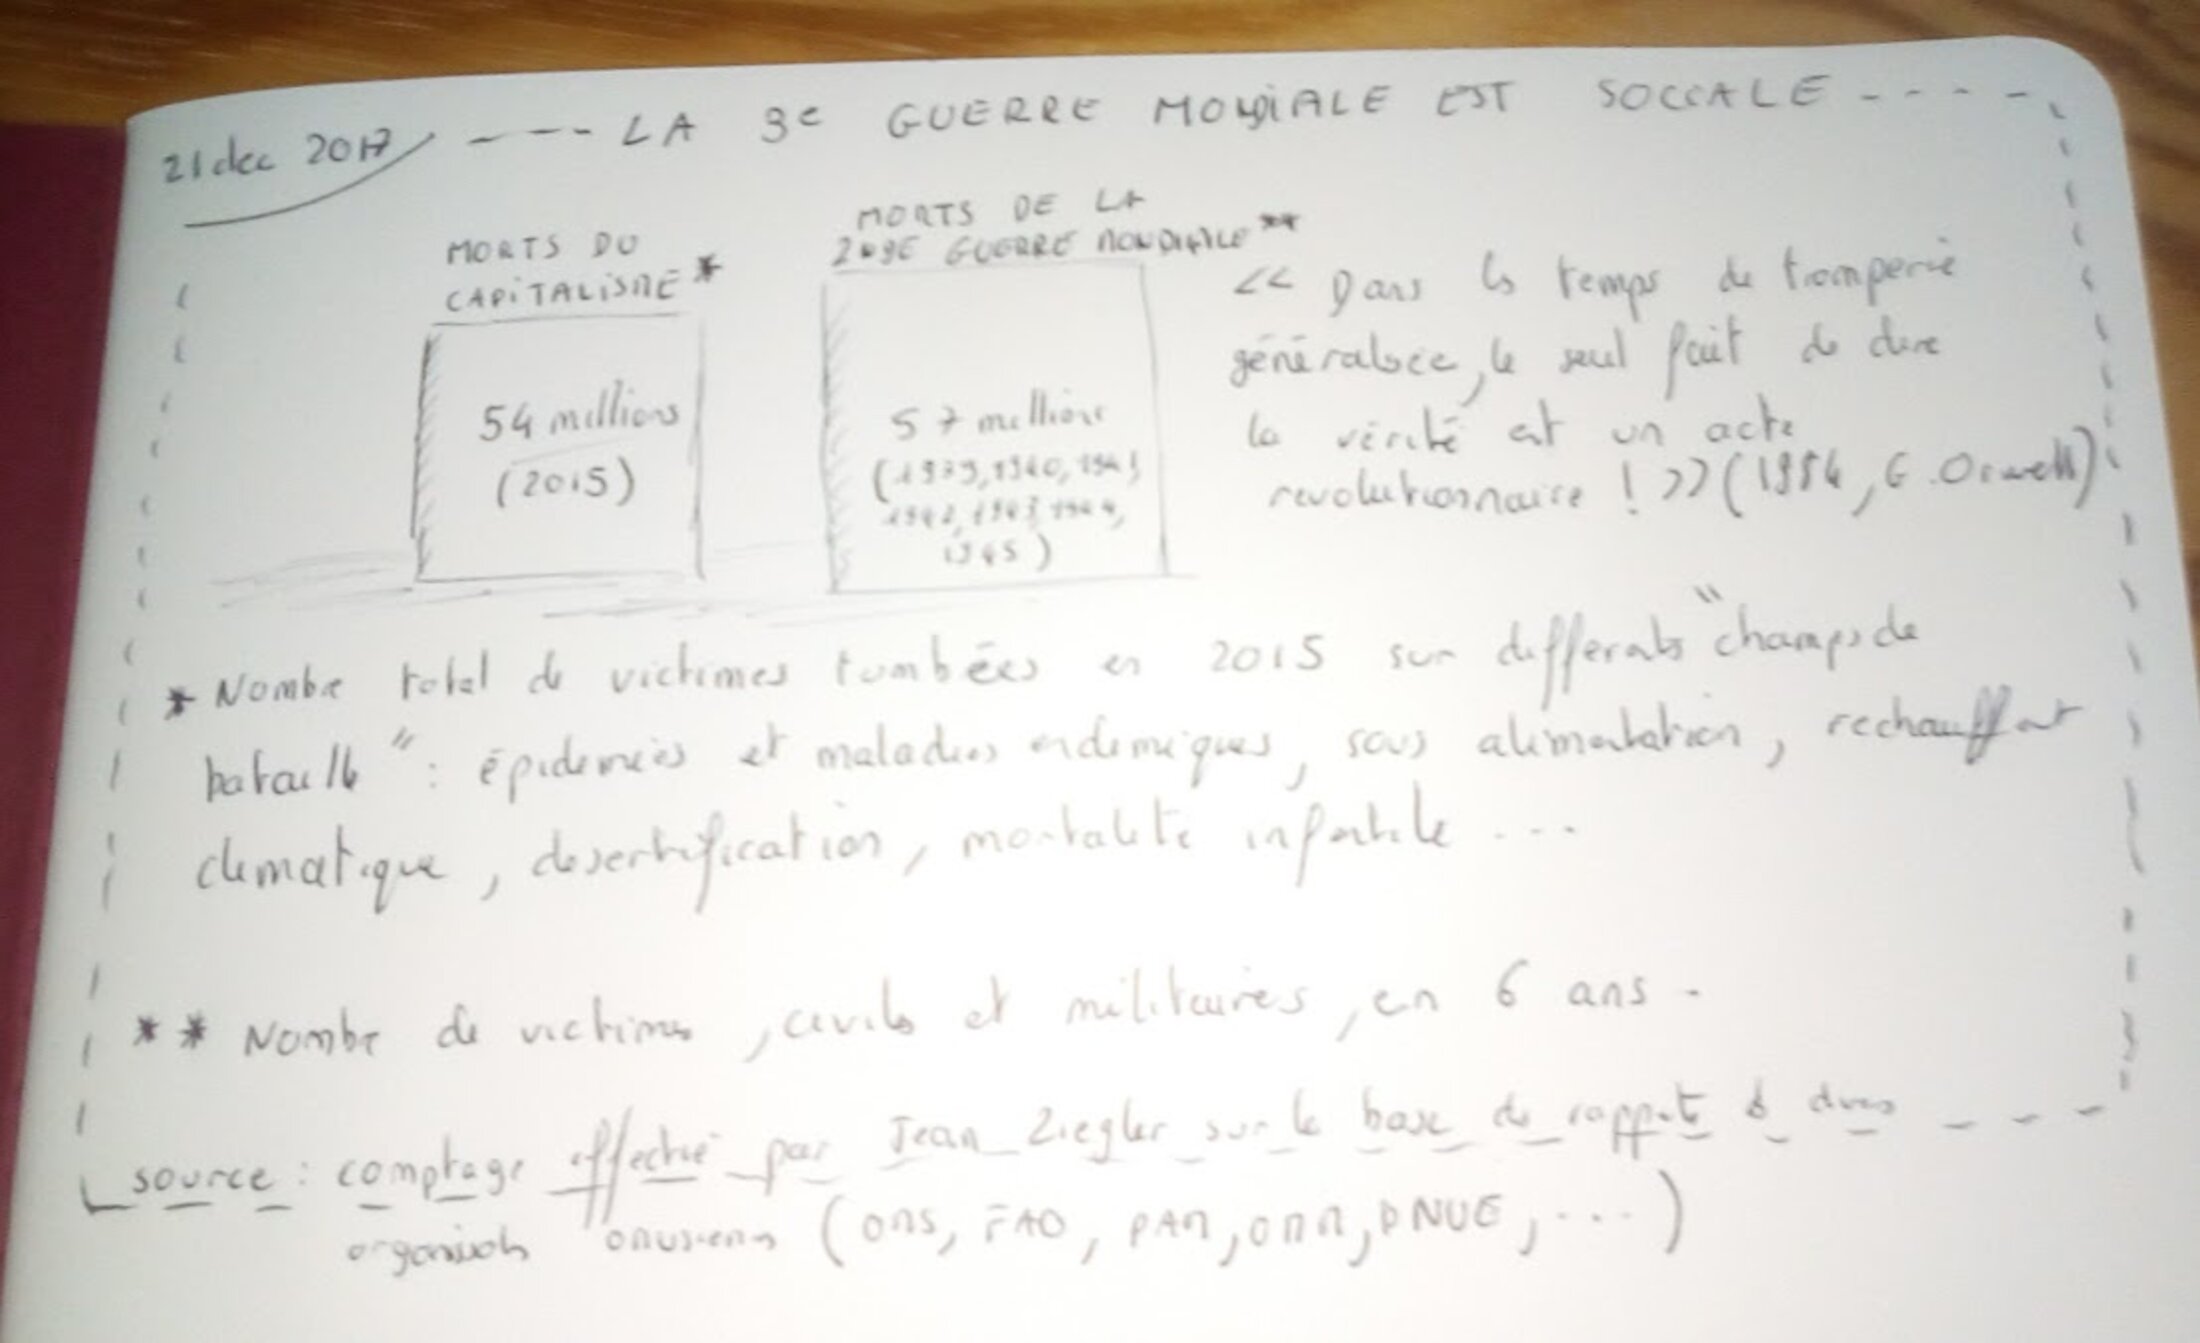 21 dec 2017 ---- LA 3e GUERRE MONDIALE EST SOCIALE ----
MORTS DU
CAPITALISME *
54 millions
(2015)
MORTS DE LA
2nde GUERRE MONDIALE **
57 millions
(1939, 1940, 1941
1942, 1943, 1944,
1945)
<< Dans les temps de tromperie
généralisée, le seul fait de dire
la vérité est un acte
revolutionnaire ! >> (1984, G. Orwell)
* Nombre total de victimes tombées en 2015 sur differents "champs de
bataille" : épidemies et maladies endemiques, sous alimentation, rechauffement
climatique, desertification, mortalité infantile ...
** Nombre de victimes, civils et militaires, en 6 ans.
source : comptage effectué par Jean Ziegler sur la base de rapports de divers
organismes onusiens (OMS, FAO, PAM, OMM, PNUE, ...)